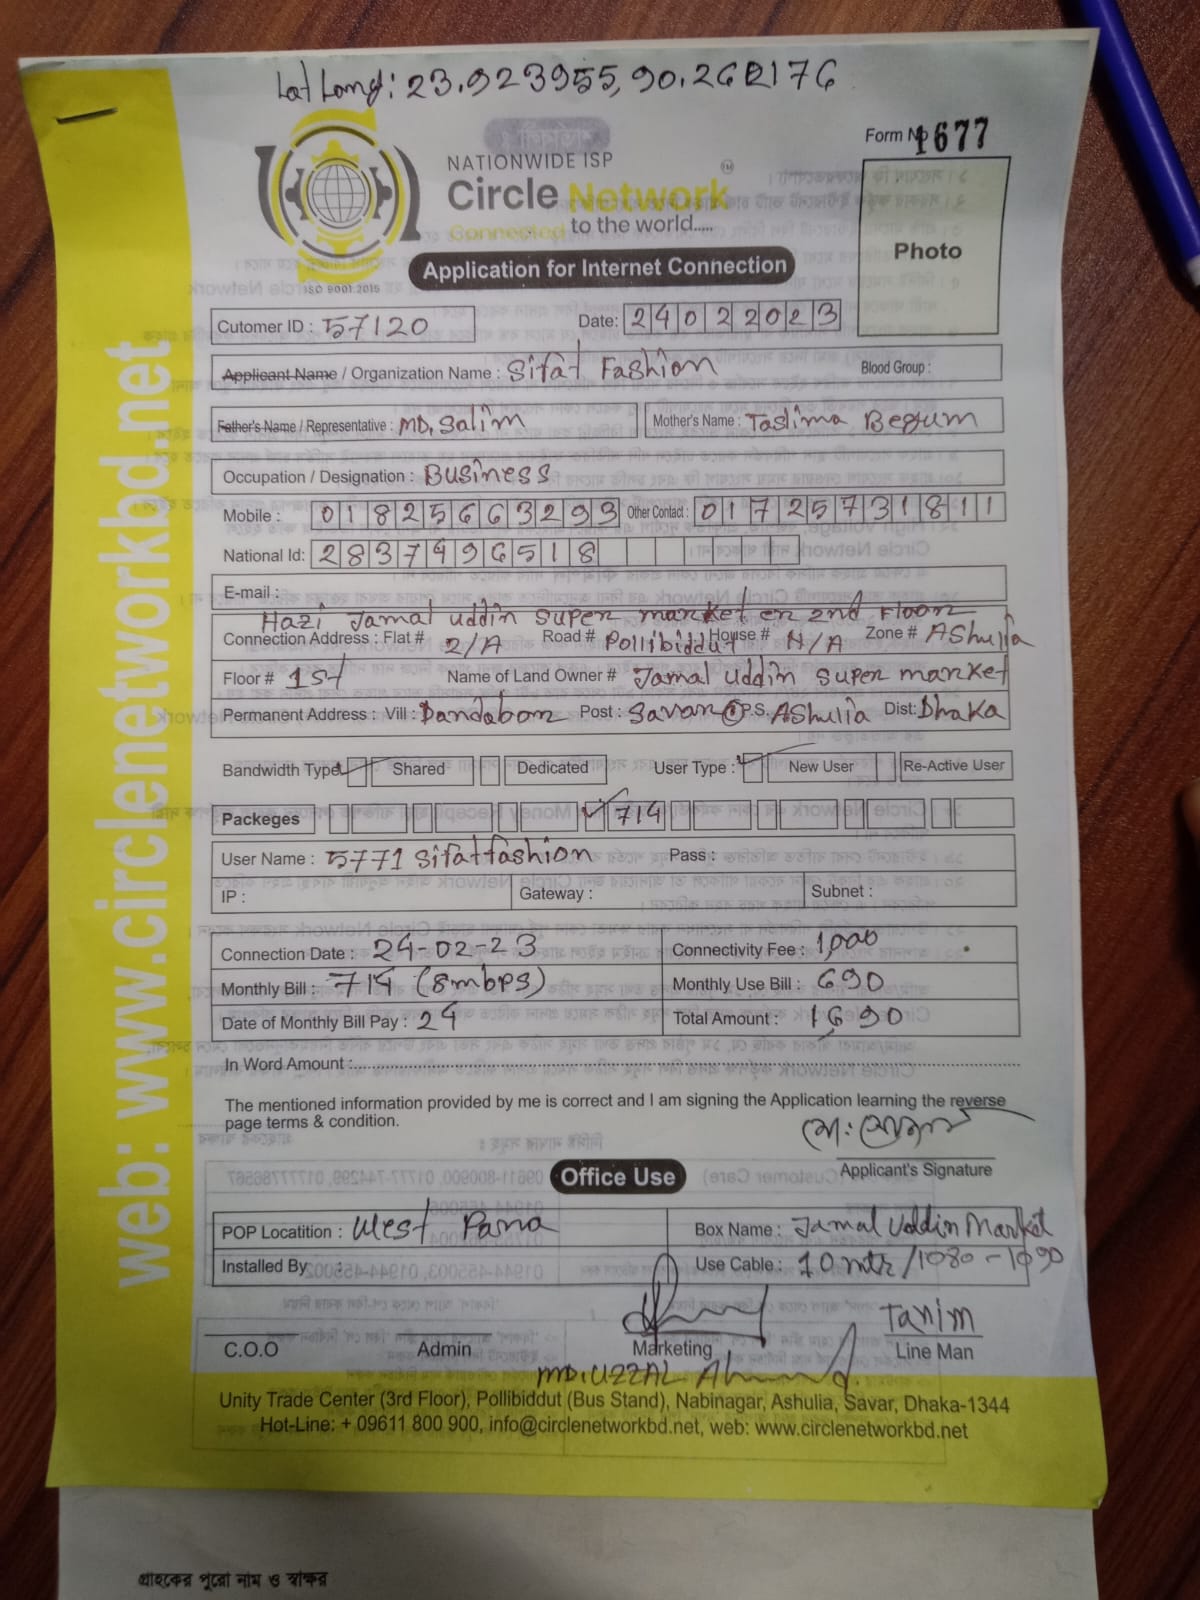 Lat Long: 23.923955, 90.262176
Form No 1677
NATIONWIDE ISP
Circle Network
TM
Connected to the world.....
ISO 9001:2015
Photo
Application for Internet Connection
Cutomer ID : 57120 Date: 24022023
Applicant Name / Organization Name : Sifat Fashion Blood Group :
Father's Name / Representative : MD. Salim Mother's Name : Taslima Begum
Occupation / Designation : Business
Mobile : 01825663293 Other Contact : 01725731811
National Id: 2837496518
E-mail :
Hazi Jamal uddin super market er 2nd Floor
Connection Address : Flat # 2/A Road # Pollibiddut House # N/A Zone # Ashulia
Floor # 1st Name of Land Owner # Jamal uddin super market
Permanent Address : Vill : Dandabor Post : Savar P.S. Ashulia Dist: Dhaka
Bandwidth Type Shared Dedicated User Type : New User Re-Active User
Packeges 714
User Name : 5771 sifatfashion Pass :
IP : Gateway : Subnet :
Connection Date : 24-02-23 Connectivity Fee : 1,000
Monthly Bill : 714 (8mbps) Monthly Use Bill : 690
Date of Monthly Bill Pay : 24 Total Amount : 1690
In Word Amount :
The mentioned information provided by me is correct and I am signing the Application learning the reverse
page terms & condition.
Applicant's Signature
Office Use
POP Locatition : West Para Box Name : Jamal Uddin Market
Installed By : Use Cable : 10 mtr /1080-1090
Tanim
C.O.O Admin Marketing Line Man
MD. UZZAL Ahmed.
Unity Trade Center (3rd Floor), Pollibiddut (Bus Stand), Nabinagar, Ashulia, Savar, Dhaka-1344
Hot-Line: + 09611 800 900, info@circlenetworkbd.net, web: www.circlenetworkbd.net
web: www.circlenetworkbd.net
গ্রাহকের পুরো নাম ও স্বাক্ষর